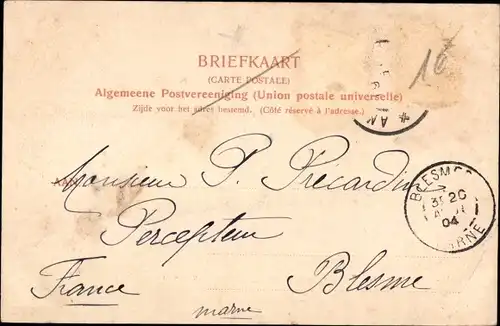 BRIEFKAART
(CARTE POSTALE)
Algemeene Postvereeniging (Union postale universelle)
Zijde voor het adres bestemd. (Côté réservé à l'adresse.)
16
Monsieur P. Précardin
Percepteur
Blesme
France
marne
BLESME
20
04
MARNE